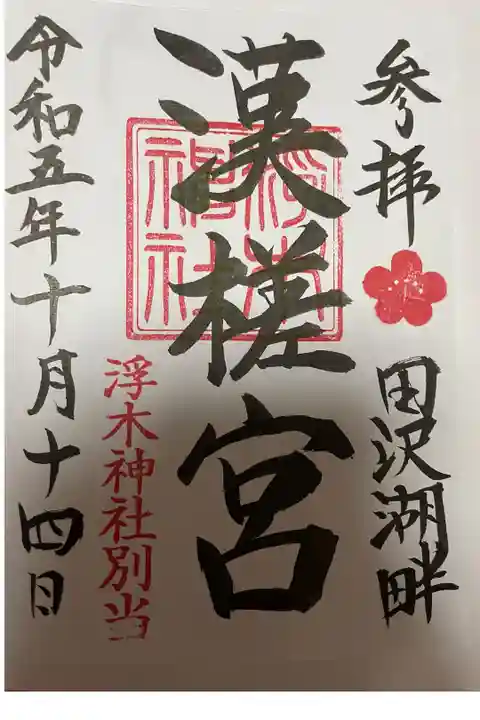 参拝
田沢湖畔
漢槎宮
浮木神社
浮木神社別当
令和五年十月十四日